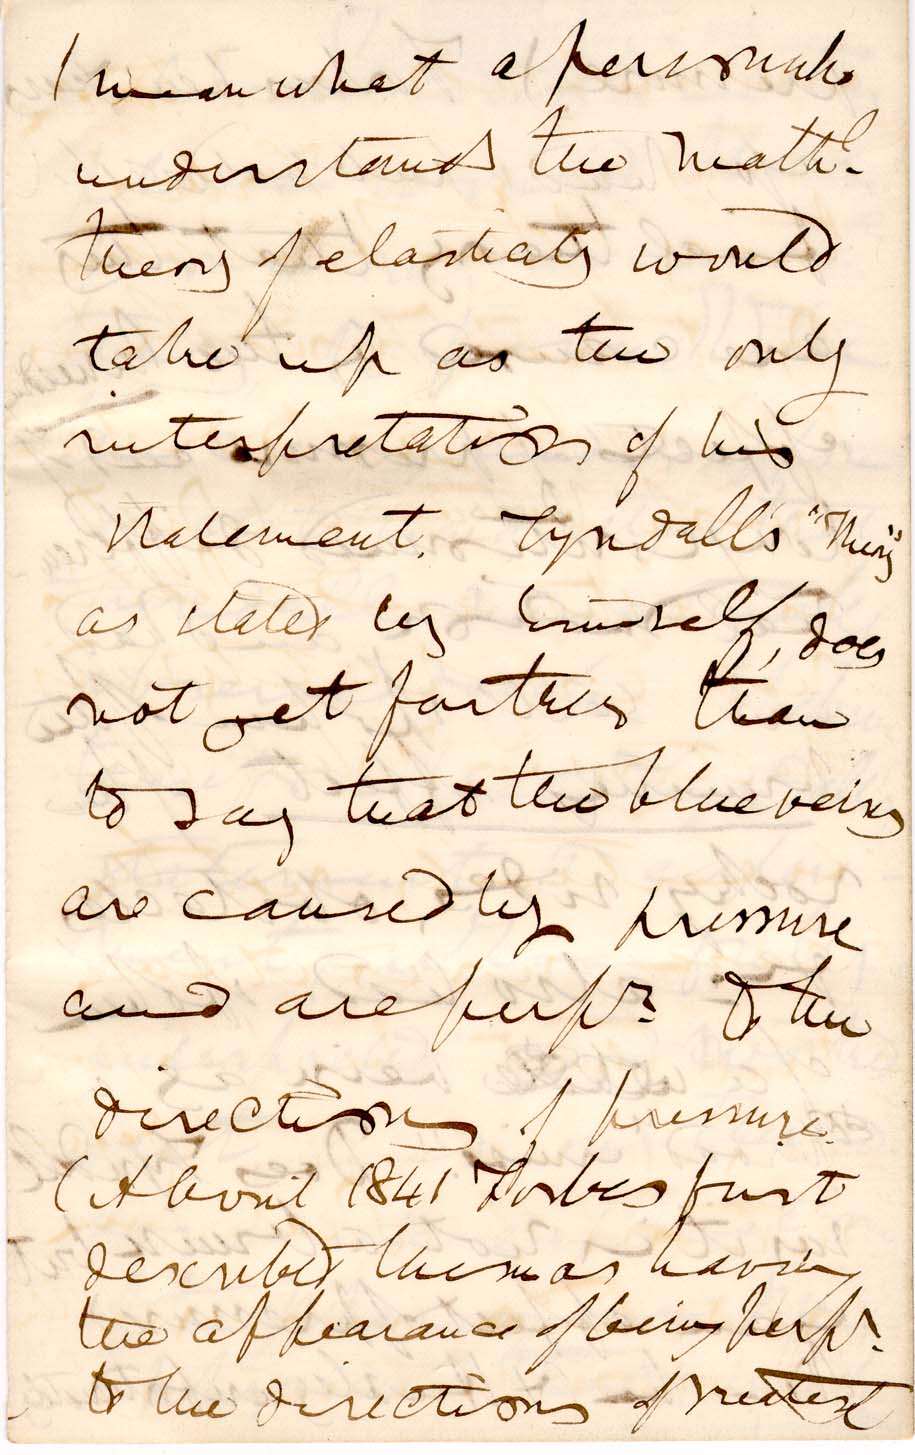 I mean what a person who
understands the Mathl.
theory of elasticity would
take up as the only
interpretation of his
statement. Tyndall's "Theory"
as stated by himself, does
not get further than
to say that the blue veins
are caused by pressure
and are perpr. to the
directions of pressure.
(About 1841 Forbes first
described them as having
the appearance of being perpr.
to the directions of greatest